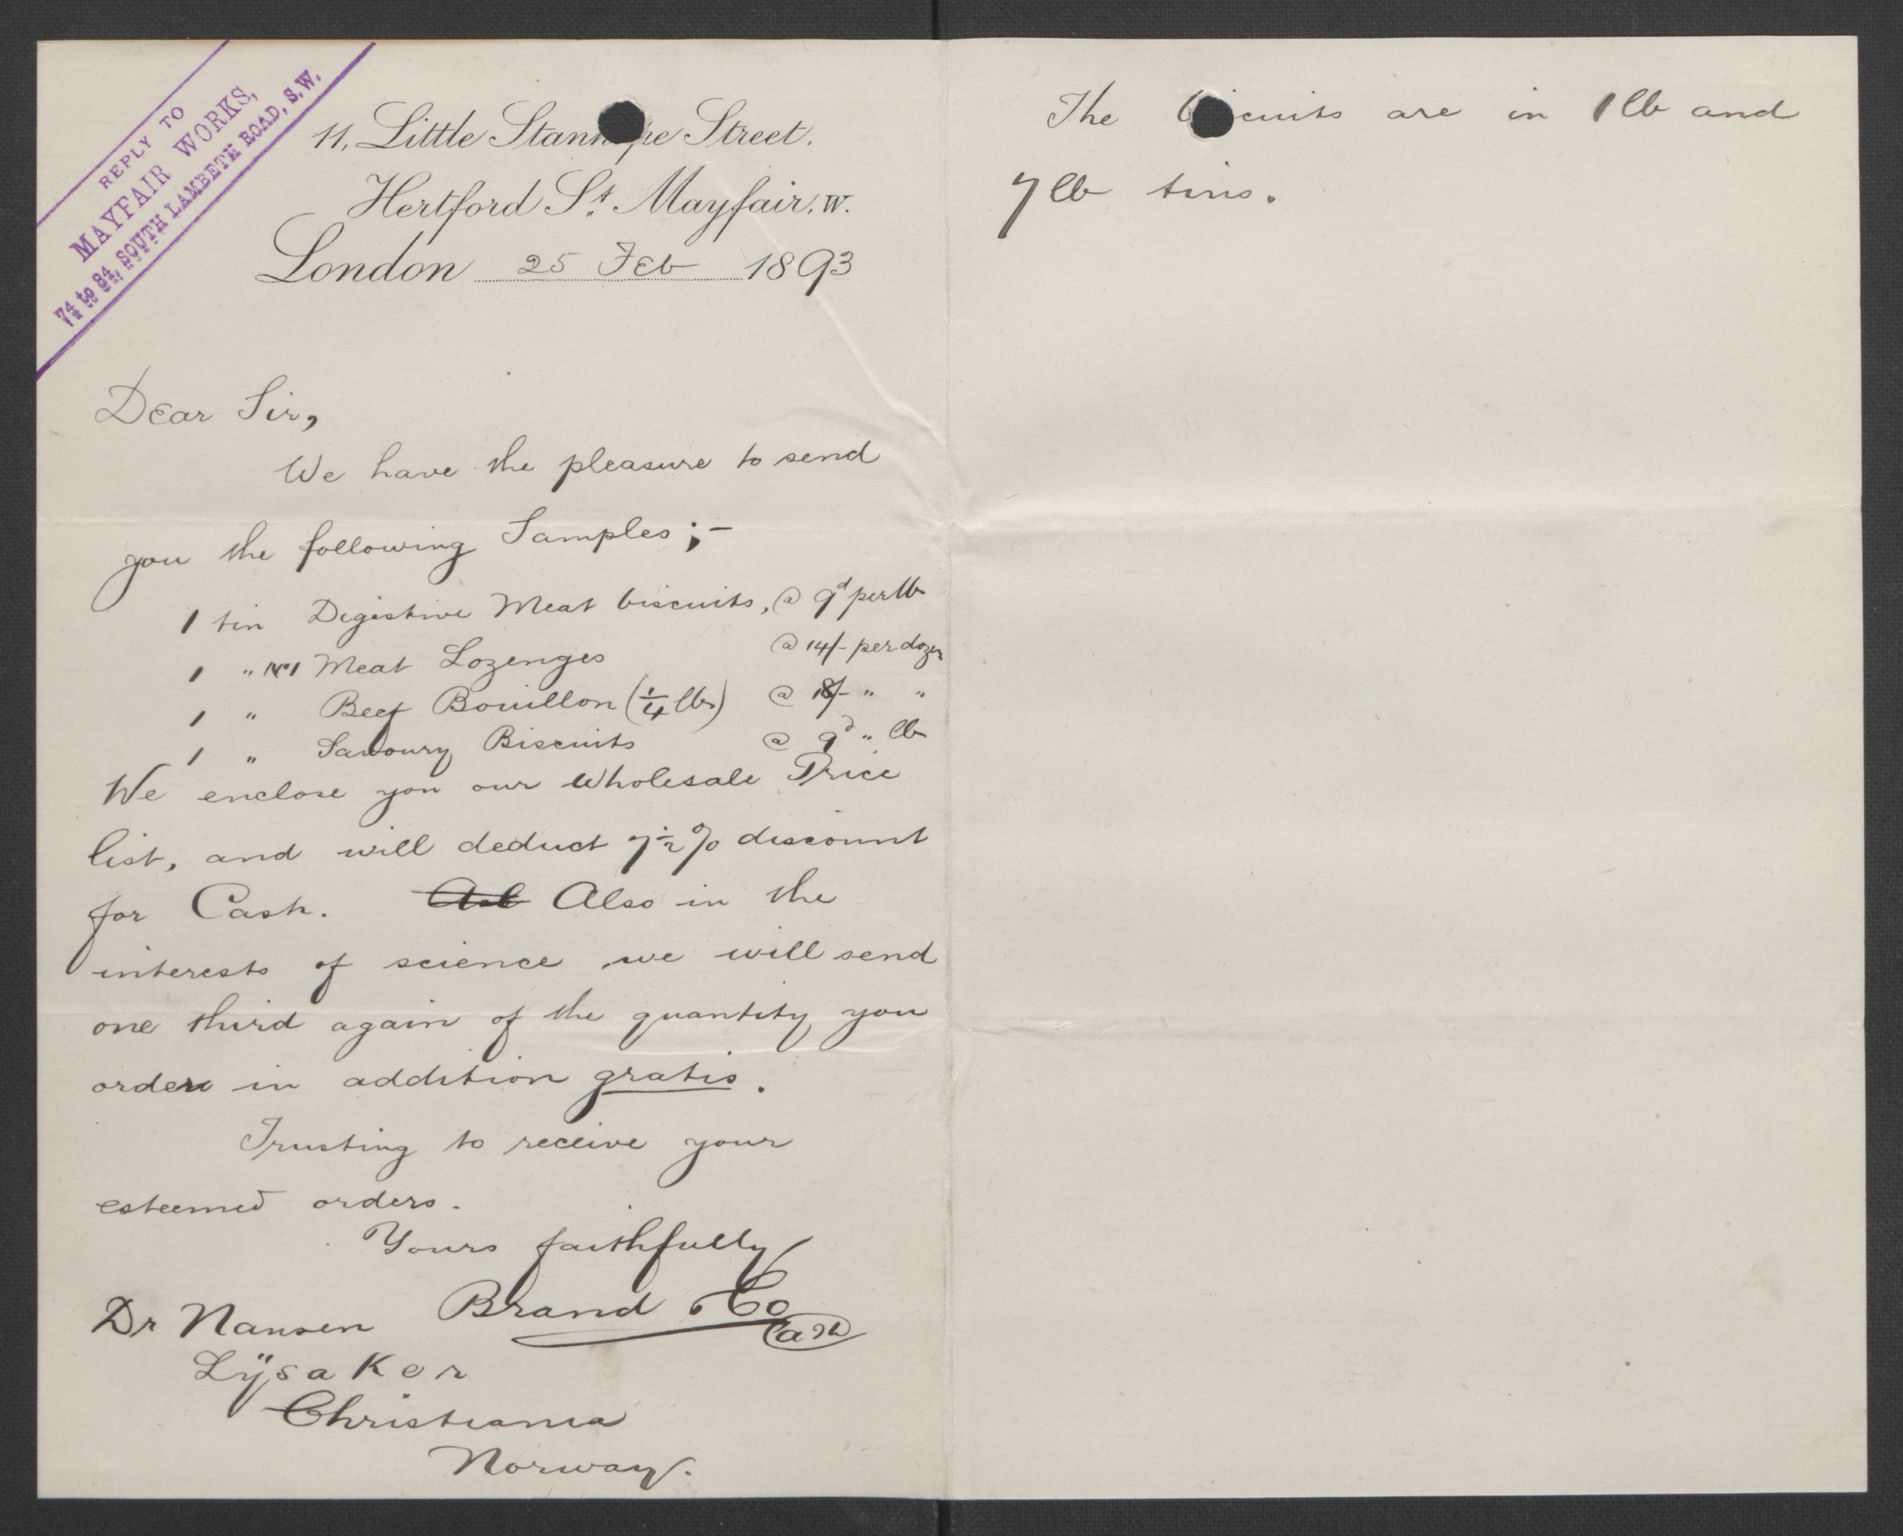 REPLY TO
MAYFAIR WORKS,
74 to 84, SOUTH LAMBETH ROAD, S.W.
11, Little Stanhope Street.
Hertford St. Mayfair. W.
London 25 Feb 1893
Dear Sir,
We have the pleasure to send
you the following Samples;-
1 tin Digestive Meat biscuits, @ 9d per lb
1 " No1 Meat Lozenges @ 14/- per dozen
1 " Beef Bouillon (1/4 lbs) @ 18/- " "
1 " Savoury Biscuits @ 9d " lb
We enclose you our Wholesale Price
list, and will deduct 7½% discount
for Cash. Also in the
interests of science we will send
one third again of the quantity you
order in addition gratis.
Trusting to receive your
esteemed orders.
Yours faithfully
Brand & Co
Dr Nansen
Lÿsaker
Christiania
Norway.
The biscuits are in 1 lb and
7 lb tins.